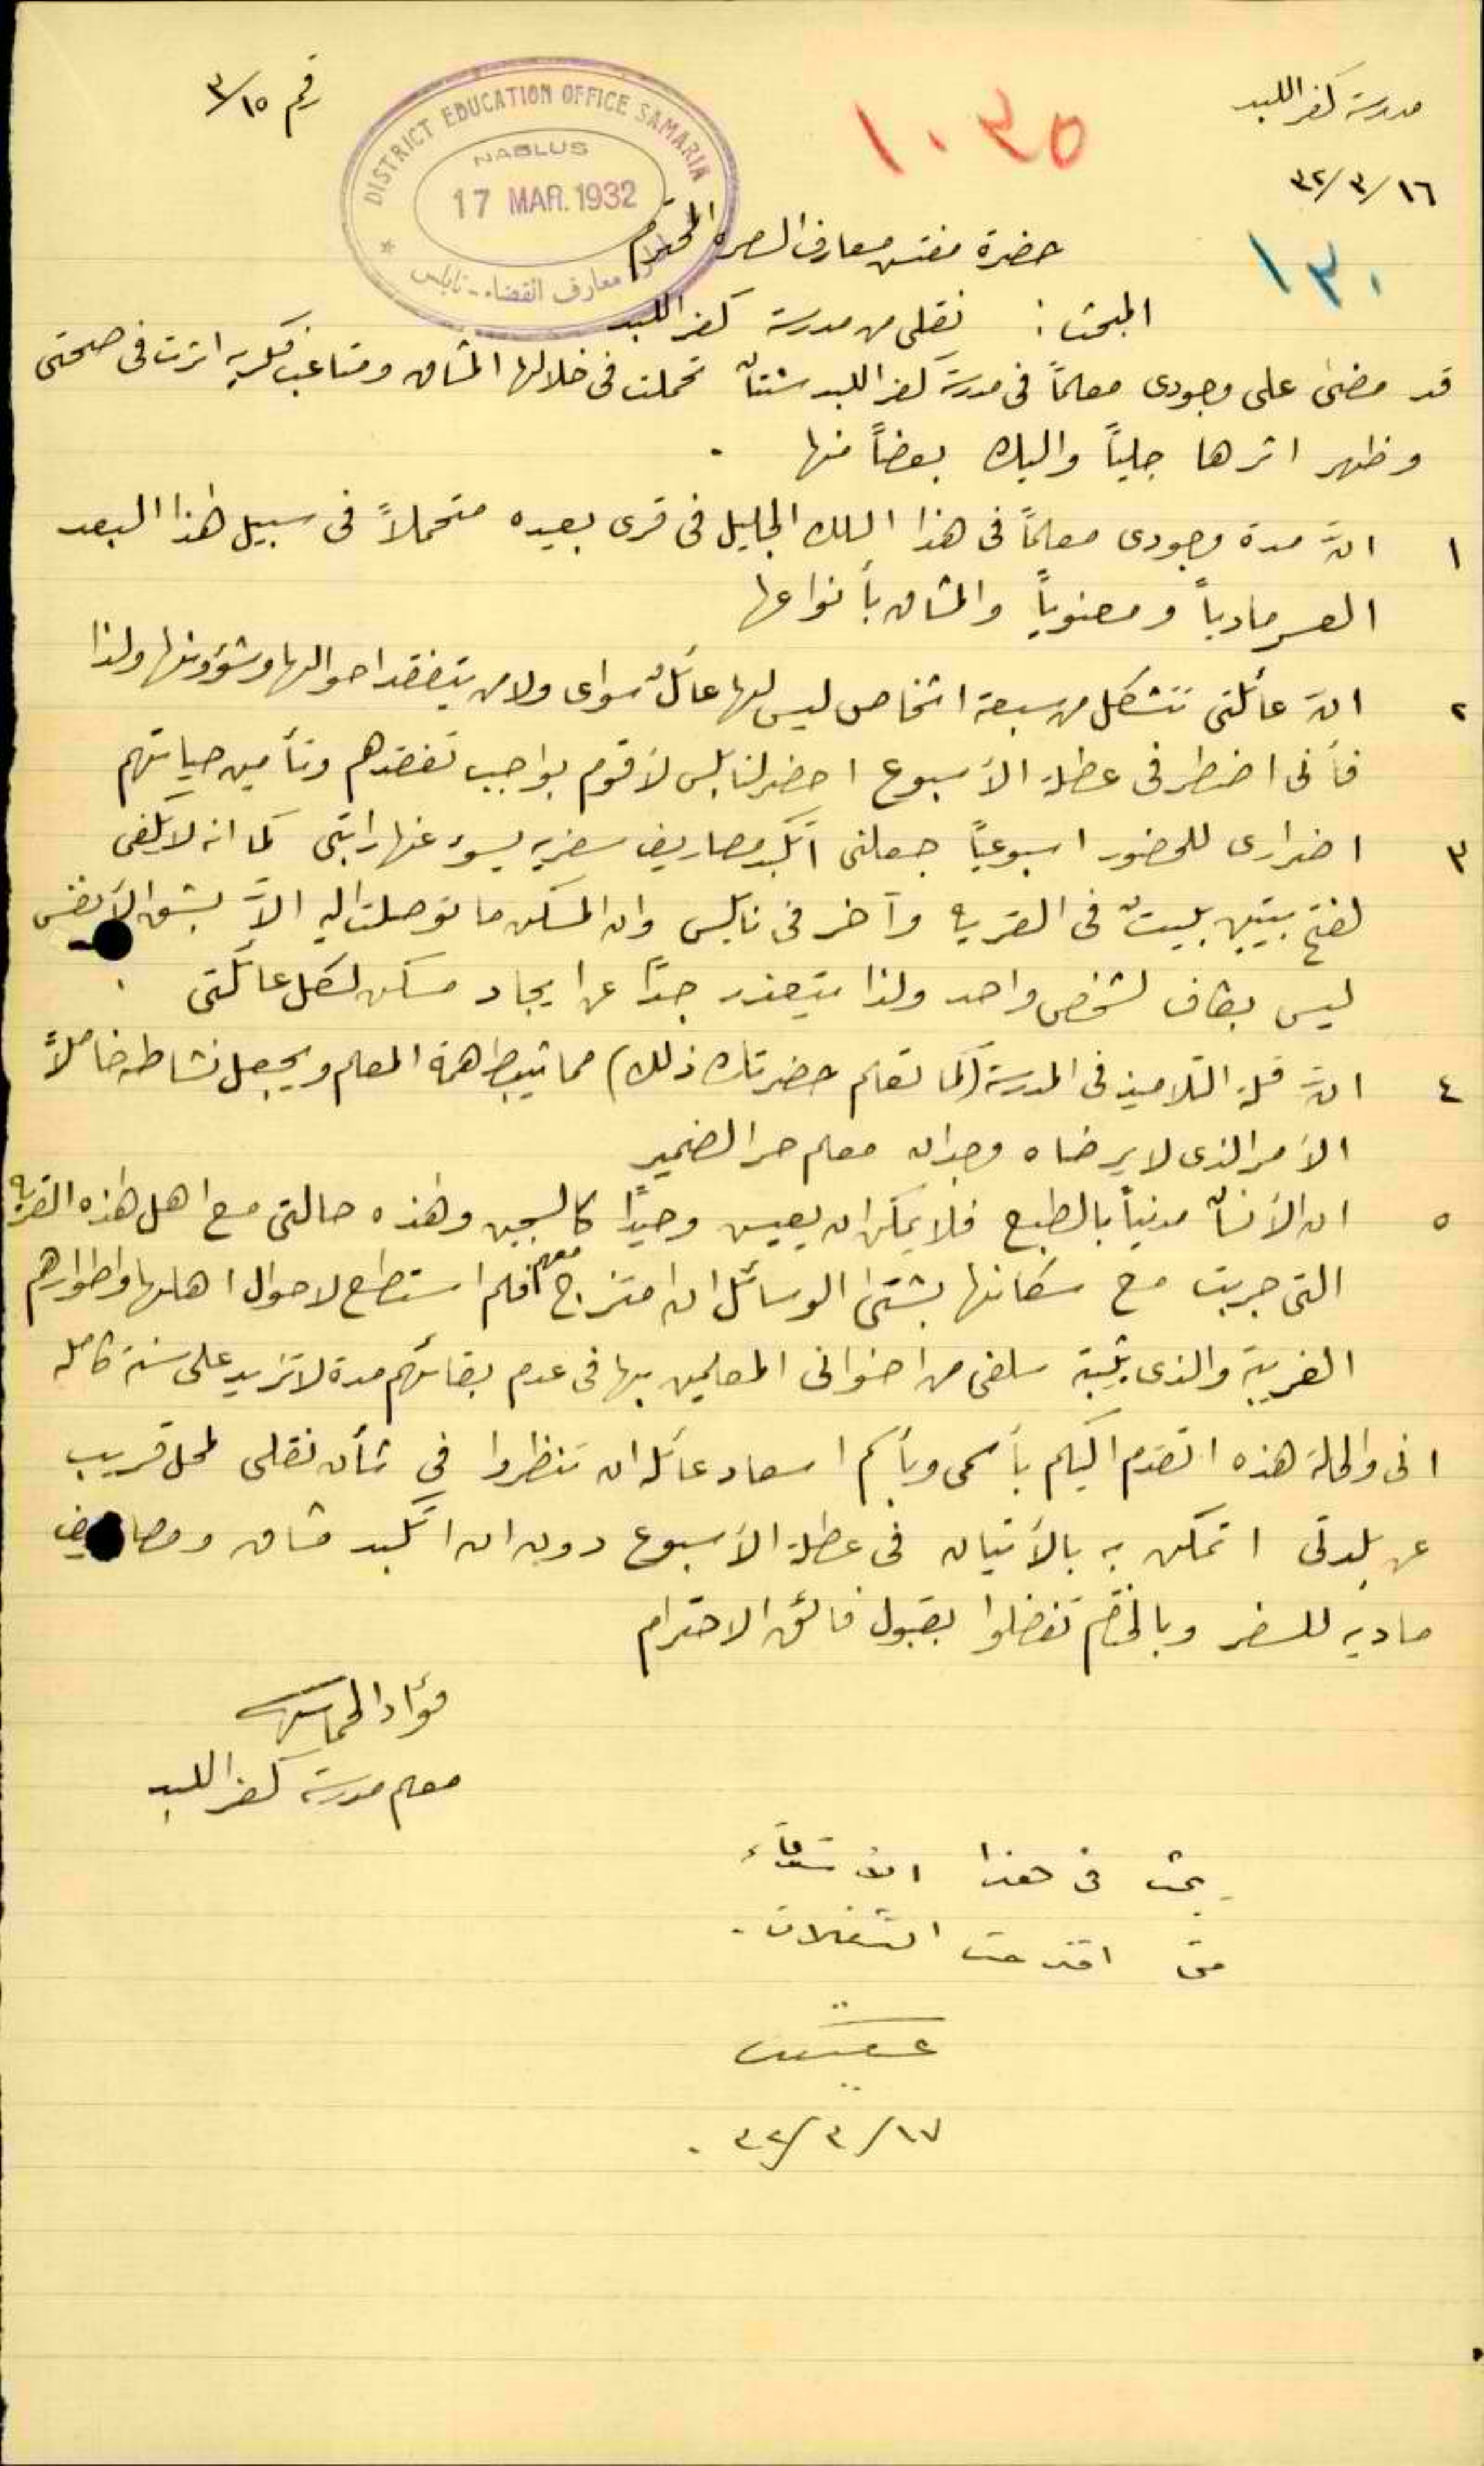 مدرسة كفر اللبد
رقم ٣/١٥
١٦/٣/٣٢
١٠٣٥
١٣٠
DISTRICT EDUCATION OFFICE SAMARIA
NABLUS
17 MAR. 1932
معارف القضاء - نابلس
حضرة مفتش معارف السامره المحترم
المبحث: نقلي من مدرسة كفر اللبد
قد مضى على وجودى معلماً فى مدرسة كفر اللبد سنتان تحملت فى خلالها المشاق ومتاعب فكريه اثرت فى صحتى
وظهر اثرها جلياً واليك بعضاً منها .
١ انّ مدة وجودى معلماً فى هذا السلك الجليل فى قرى بعيده متحملاً فى سبيل هذا البعد
العسر مادياً ومعنوياً والمشاق بأنواعها
٢ انّ عائلتى تتشكل من سبعة اشخاص ليس لها عائل سواى ولا من يتفقد احوالها وشؤونها ولذا
فأنى اضطر فى عطلة الأسبوع احضر لنابلس لأقوم بواجب تفقدهم وتأمين حياتهم
٣ اضرارى للحضور اسبوعياً جعلنى اتكبد مصاريف سفريه ينوء عنها راتبى كما انه لا يكفى
لفتح بيتين بيت فى القريه وآخر فى نابلس وان المسكن ما توصلت اليه الاّ بشق الأنفس
ليس بكاف لشخص واحد ولذا يتعذر جداً عن ايجاد مسكن لكل عائلتى .
٤ انّ قلة التلاميذ فى المدرسة (كما تعلم حضرتك ذلك) مما يثبط همة المعلم ويجعل نشاطه خاملاً
الأمر الذى لا يرضاه وجدان معلم حر الضمير
٥ ان الأنسان مدنياً بالطبع فلا يمكن ان يعيش وحيداً كالسجين وهذه حالتى مع اهل هذه القريه
التى جربت مع سكانها بشتى الوسائل ان امتزج معهم فلم استطع لاحوال اهلها واطوارهم
الغريبة والذى يثبته سلفى من اخوانى المعلمين بها فى عدم بقائهم مدة لا تزيد على سنة كامله
انى والحالة هذه اتقدم اليكم بأسمى وبأسم اسعاد عائله ان تنظروا في شأن نقلى لمحل قريب
عن بلدتى اتمكن به بالأتيان فى عطلة الأسبوع دون ان اتكبد مشاق ومصاريف
ماديه للسفر وبالختام تفضلوا بقبول فائق الاحترام
فؤاد
معلم مدرسة كفر اللبد
يبحث فى هذا الاستدعاء
متى اقترحت التنقلات .
١٧/٣/٣٢ .